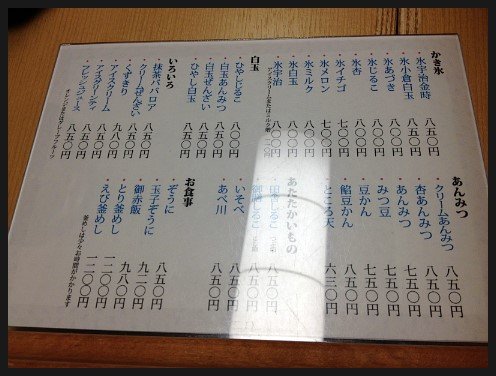 かき氷
氷宇治金時 八五〇円
氷小倉白玉 八五〇円
氷あづき 八〇〇円
氷じるこ 八〇〇円
氷杏 八〇〇円
氷イチゴ 七〇〇円
氷メロン 七〇〇円
氷ミルク
氷白玉
氷宇治 八〇〇円
白玉
ひやじるこ 八〇〇円
白玉あんみつ 八五〇円
白玉ぜんざい 八五〇円
ひやし白玉 八五〇円
いろいろ
抹茶ババロア 八五〇円
クリームぜんざい 八五〇円
くずきり 九八〇円
アイスクリーム
アイスクリームティ 八五〇円
フレッシュジュース 八五〇円
あんみつ
クリームあんみつ 八五〇円
杏あんみつ 八五〇円
あんみつ 七五〇円
みつ豆 七五〇円
豆かん 七五〇円
餡豆かん 八五〇円
ところ天 六三〇円
あたたかいもの
八五〇円
御膳じるこ 八五〇円
いそべ 八五〇円
あべ川 八五〇円
お食事
ぞうに 八五〇円
玉子ぞうに 九二〇円
御赤飯 九八〇円
とり釜めし 一二〇〇円
えび釜めし 一二〇〇円
釜めしは少々お時間がかかります